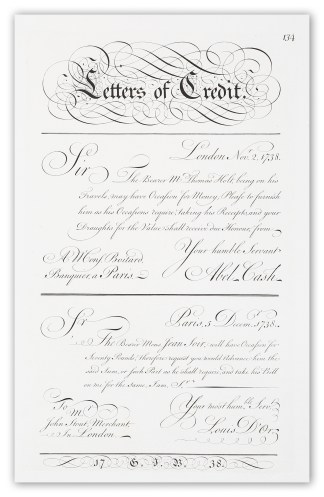 134
Letters of Credit.
London Nov.r 2. 1738.
Sir
The Bearer M.r Thomas Holt, being on his
Travels, may have Occasion for Money, Please to furnish
him as his Occasions require, Taking his Receipts, and your
Draughts for the Value shall receive due Honour, from
Your humble Servant
A Mons.r Boitard,
Banquier, a Paris.
Abel Cash.
Paris, 3 Decem.r 1738.
S.r
The Bearer Mons. Jean Soir, will have Occasion for
Seventy Pounds; therefore request you would Advance him the
said Sum, or such Part as he shall require, and take his Bill
on me for the same. I am, S.r
To
M.r
John Stout, Merchant,
In London.
Your most hum.le Serv.t
Louis D'Or.
17 G. B. 38.